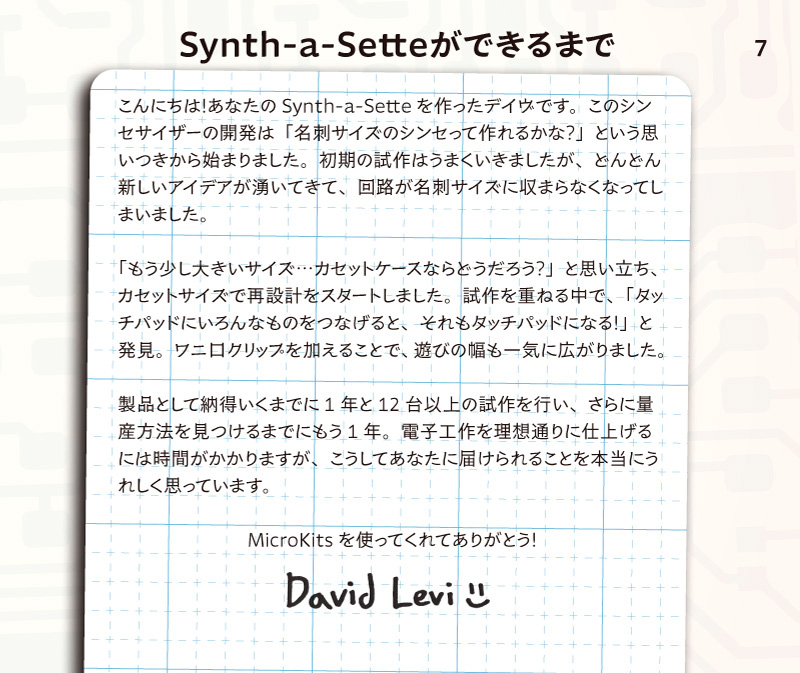 Synth-a-Setteができるまで
7
こんにちは!あなたの Synth-a-Sette を作ったデイヴです。このシン
セサイザーの開発は「名刺サイズのシンセって作れるかな?」という思
いつきから始まりました。初期の試作はうまくいきましたが、どんどん
新しいアイデアが湧いてきて、回路が名刺サイズに収まらなくなってし
まいました。
「もう少し大きいサイズ…カセットケースならどうだろう?」と思い立ち、
カセットサイズで再設計をスタートしました。試作を重ねる中で、「タッ
チパッドにいろんなものをつなげると、それもタッチパッドになる!」と
発見。ワニ口クリップを加えることで、遊びの幅も一気に広がりました。
製品として納得いくまでに 1 年と 12 台以上の試作を行い、さらに量
産方法を見つけるまでにもう 1 年。電子工作を理想通りに仕上げる
には時間がかかりますが、こうしてあなたに届けられることを本当にう
れしく思っています。
MicroKits を使ってくれてありがとう!
David Levi